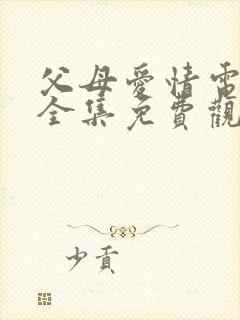 父母愛情電
全集免費觀
少貢